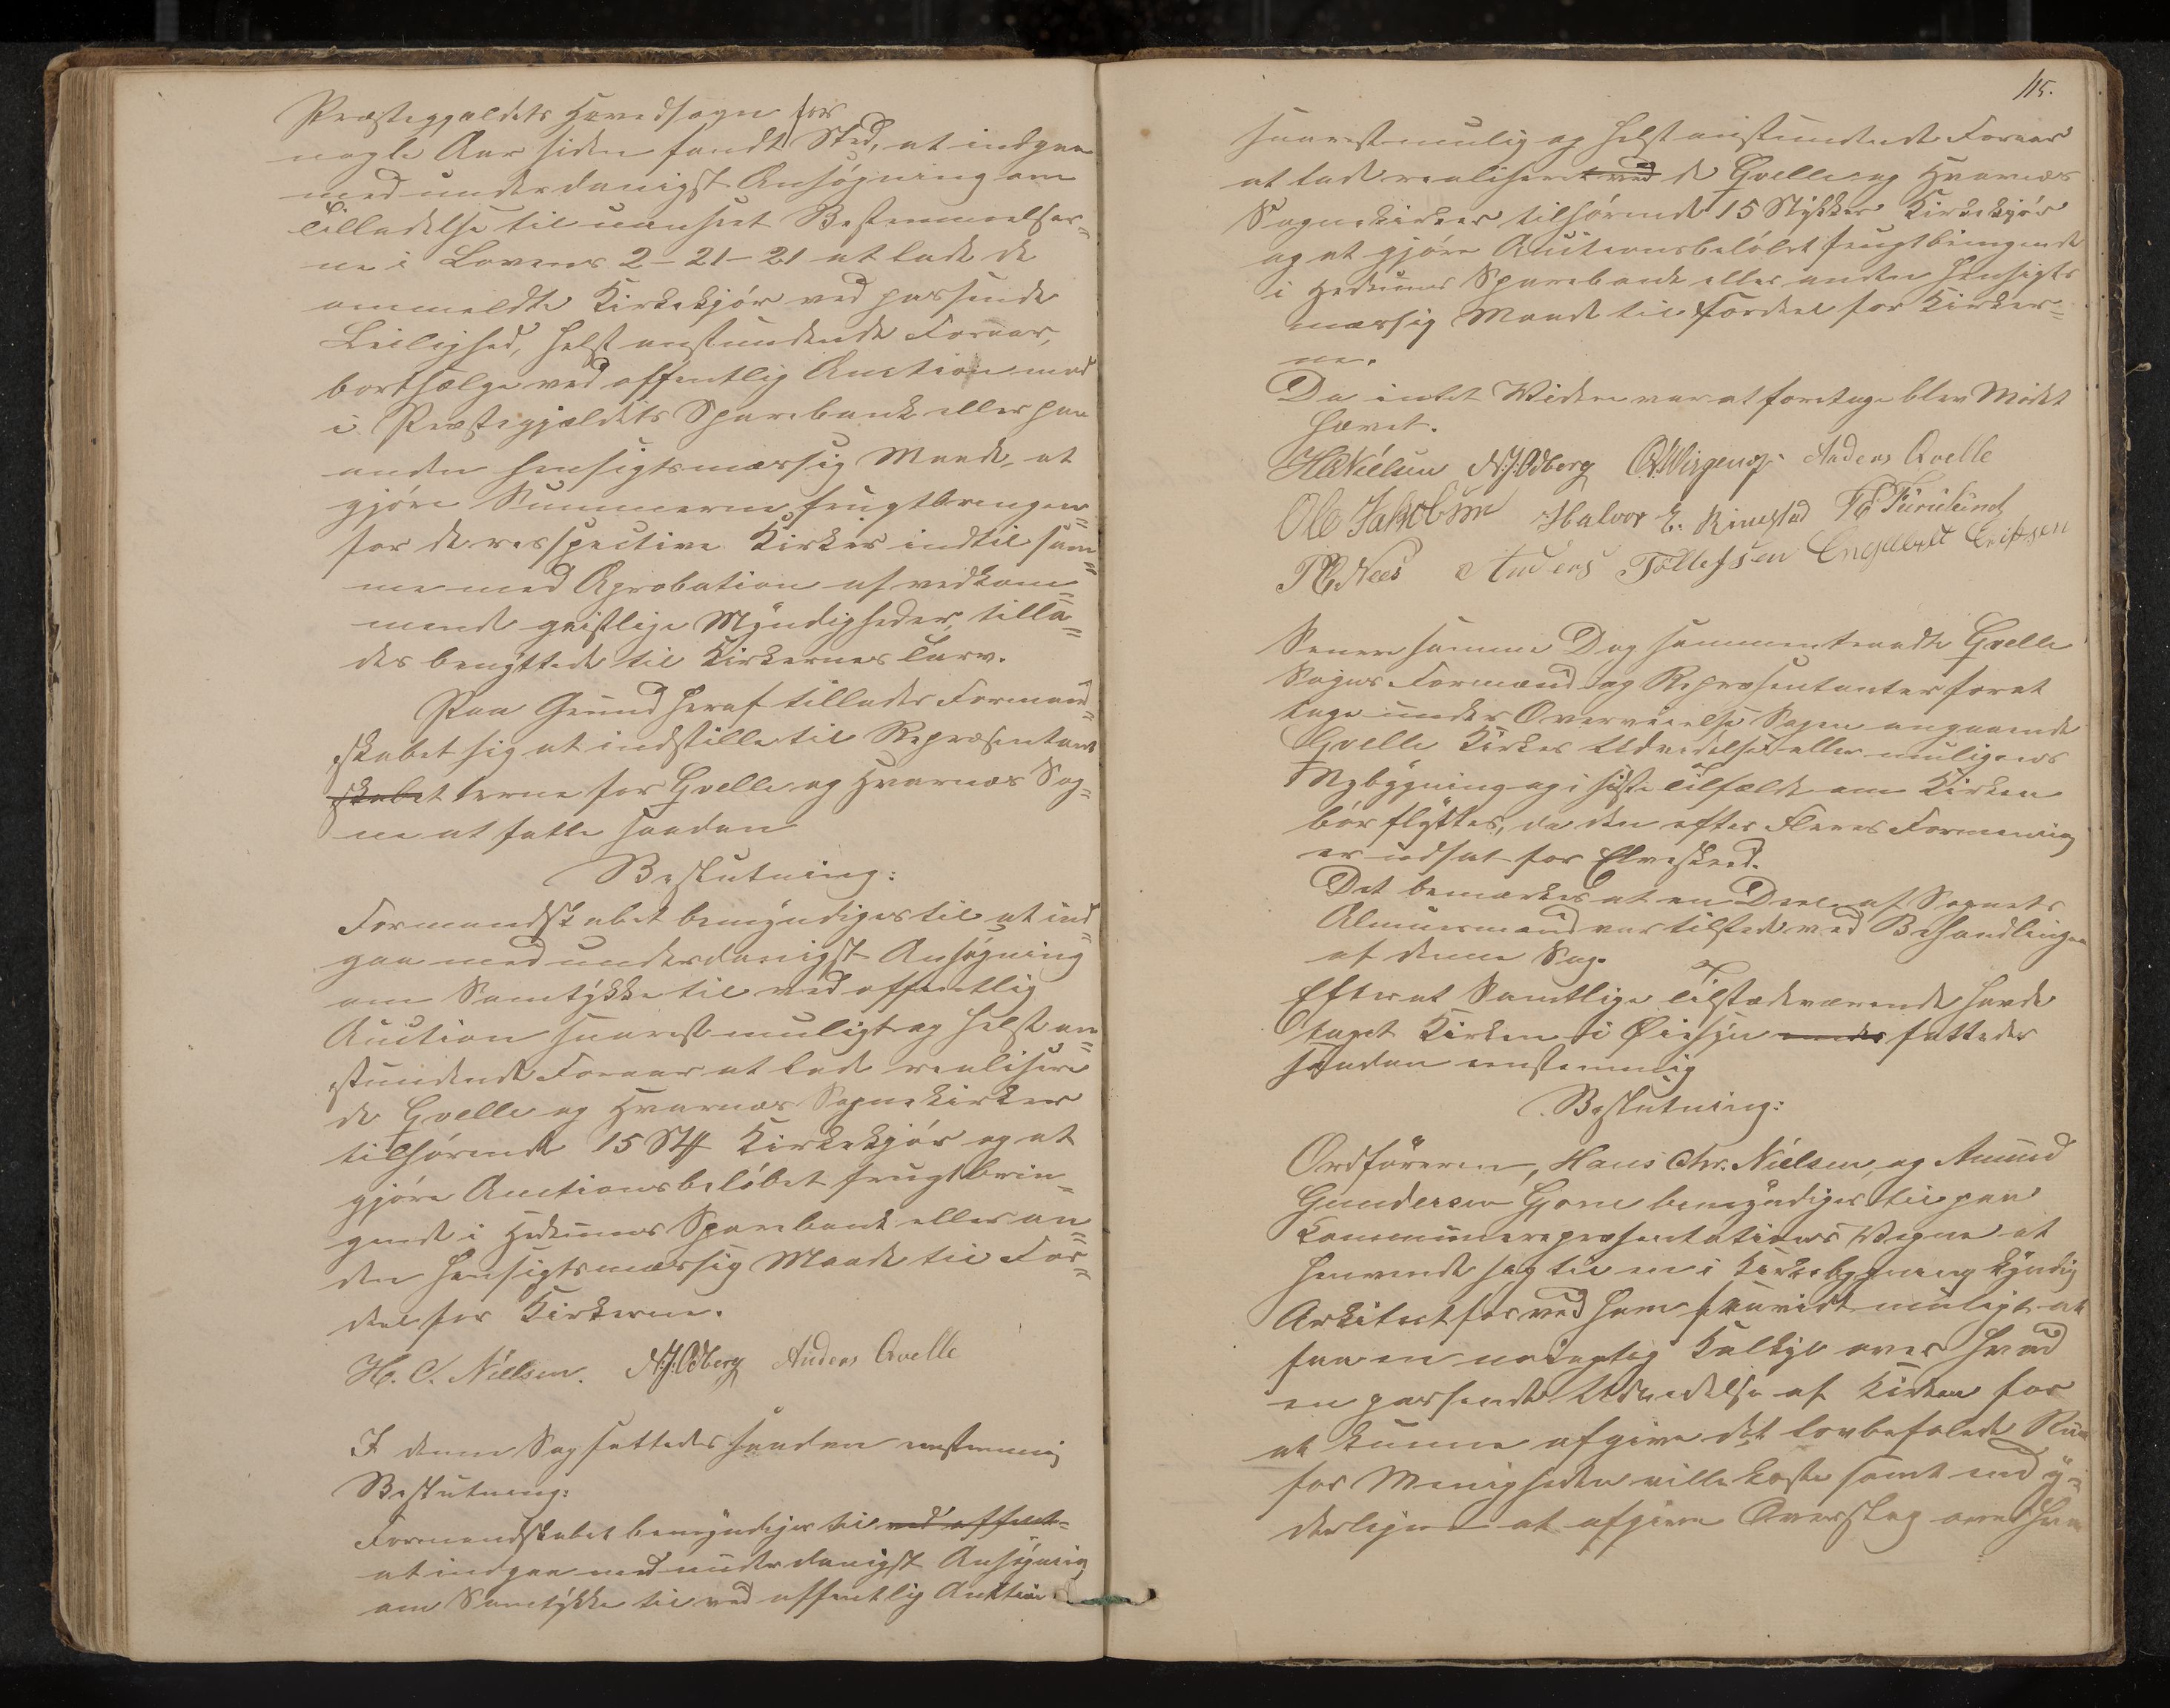 Præstegjældets Hovedsogn for
nogle Aar siden fandt Sted, at indgaa
med underdanigst Ansøgning om
Tilladelse til uanseet Bestemmelser=
ne i Lovens 2-21-21 at lade de
ommeldte Kirkekjør ved passende
Leilighed, helst anstundende Foraar,
bortsælge ved offentlig Auction med
i Præstegjældets Sparebank eller paa
anden hensigtsmæssig Maade, at
gjøre Summerne frugtbringen=
for de respective Kirker indtil sam=
me med Aprobation af vedkom=
mende geistlige Myndigheder, tilla=
des benyttede til Kirkernes Tarv.
Paa Grund heraf tillader Formand=
skabet sig at indstille til Repræsentant
skabet terne for Qvelle og Hvarnæs Sog=
ne at fatte saadan
Beslutning:
Formandskabet bemyndiges til at ind=
gaa med underdanigst Ansøgning
om Samtykke til ved offentlig
Auction snarest muligt og helst an=
stundende Foraar at lade realisere
de Qvelle og Hvarnæs Sognekirker
tilhørende 15 Stk Kirkekjør og at
gjøre Auctionsbeløbet frugtbrin=
gende i Hedrums Sparebank eller an=
den hensigtsmæssig Maade til For=
del for Kirkerne.
H. C. Nielsen. N.J. Odberg Anders Qvelle
I denne Sag fattedes saadan eenstemmig
Beslutning:
Formandskabet bemyndiges til ved offent=
at indgaa med underdanigst Ansøgning
om Samtykke til ved offentlig Auktion
115.
snarest mulig og helst anstundende Foraar
at lade realisere ved de Qvelle og Hvarnæs
Sognekirker tilhørende 15 Stykker Kirkekjør
og at gjøre Auctionsbeløbet frugtbringende
i Hedrums Sparebank eller anden hensigts
mæssig Maade til Fordeel for Kirker=
ne.
Da intet Videre var at foretage blev Mødet
hævet.
H C Nielsen N.J. Odberg Anders Qvelle
Ole Jakobsen Halvor E. Rimstad
Anders Tollefsen Engelbret
Senere samme Dag sammentraadte Qvelle
Sogns Formænd og Repræsentanter for at
tage under Overveielse Sagen angaaende
Qvelle Kirkes Udvidelse eller muligens
Nybygning og i sidste Tilfælde om Kirken
bør flyttes, da den efter Fleres Formening
er udsat for Elveskred.
Det bemærkes at en Deel af Sognets
Almuesmænd var tilstede ved Behandlingen
af denne Sag.
Efter at Samtlige Tilstedeværende havde
taget Kirken i Øiesyn fattedes
saadan eenstemmig
Beslutning:
Ordføreren, Hans Chr. Nielsen, og Amund
Gundersen Gone bemyndiges til paa
Kommunerepræsentationens Vegne at
henvende sig til en i Kirkebygning kyndig
Arkitect for ved ham saavidt muligt at
faa en nøiagtig Kalkyl over hvad
en passende Udvidelse af Kirken for
at kunne afgive det lovbefalede Rum
for Menigheden ville koste samt end y=
derligere at afgive Overslag over hva